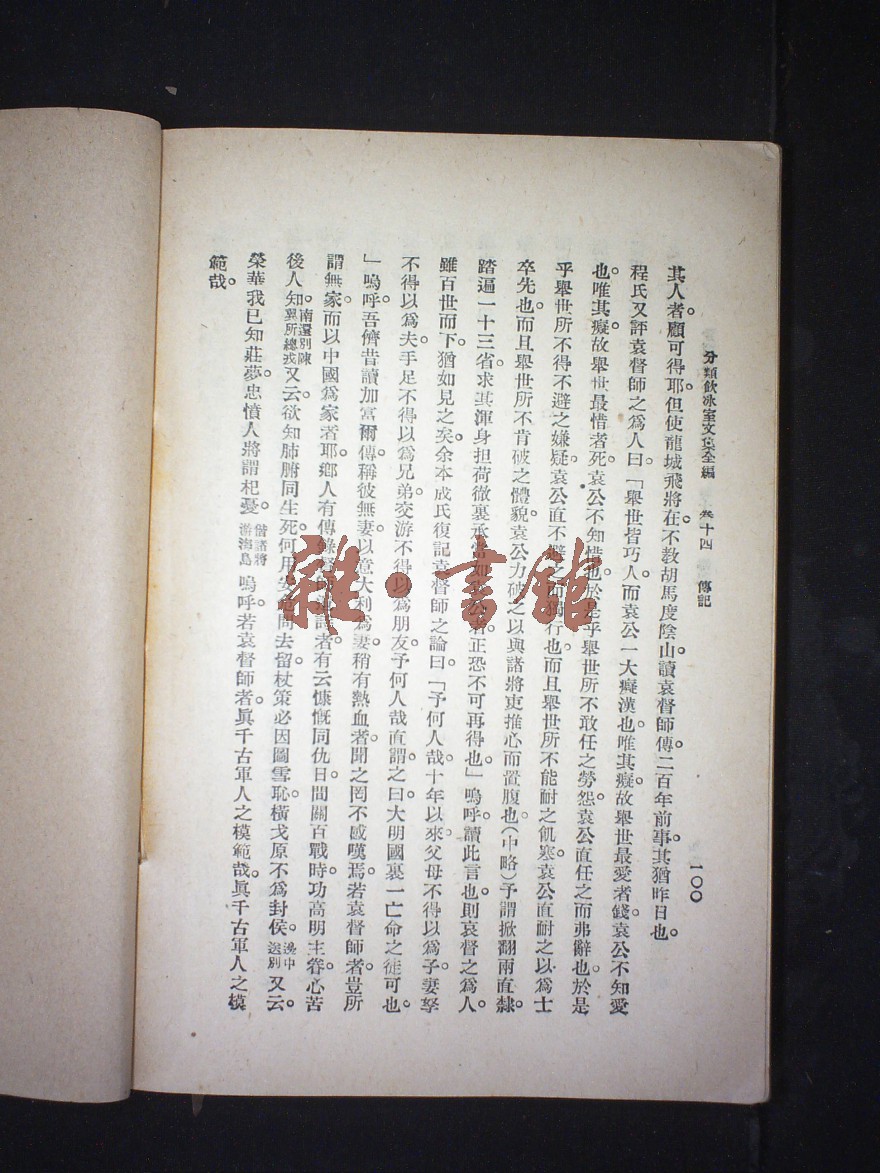 分類飲冰室文集全編 卷十四 傳記 一〇〇
其人者。顧可得耶。但使龍城飛將在。不教胡馬度陰山。讀袁督師傳。二百年前事。其猶昨日也。
程氏又評袁督師之爲人曰。「舉世皆巧人。而袁公一大癡漢也。唯其癡。故舉世最愛者錢。袁公不知愛
也。唯其癡。故舉世最惜者死。袁公不知惜也。於是乎舉世所不敢任之勞怨。袁公直任之而弗辭也。於是
乎舉世所不得不避之嫌疑。袁公直不避之而獨行也。而且舉世所不能耐之飢寒。袁公直耐之以爲士
卒先也。而且舉世所不肯破之體貌。袁公力破之以與諸將吏推心而置腹也。(中略)予謂掀翻兩直隸。
踏遍一十三省。求其渾身担荷徹裏承當如袁公者。正恐不可再得也。」嗚呼。讀此言也。則袁督之爲人。
雖百世而下。猶如見之矣。余本成氏復記袁督師之論曰。「予何人哉。十年以來。父母不得以爲子。妻孥
不得以爲夫。手足不得以爲兄弟。交游不得以爲朋友。予何人哉。直謂之曰。大明國裏一亡命之徒可也。
」嗚呼。吾儕昔讀加富爾傳。稱彼無妻。以意大利爲妻。稍有熱血者。聞之罔不感嘆焉。若袁督師者。豈所
謂無家。而以中國爲家者耶。鄉人有傳錄督師遺詩者。有云。慷慨同仇日。間關百戰時。功高明主眷。心苦
後人知。南還別陳翼所總戎又云。欲知肺腑同生死。何用安危問去留。杖策必因圖雪恥。橫戈原不爲封侯。邊中送別又云。
榮華我已知莊夢。忠憤人將謂杞憂。偕諸將游海島嗚呼。若袁督師者。眞千古軍人之模範哉。眞千古軍人之模
範哉。
雜·書館